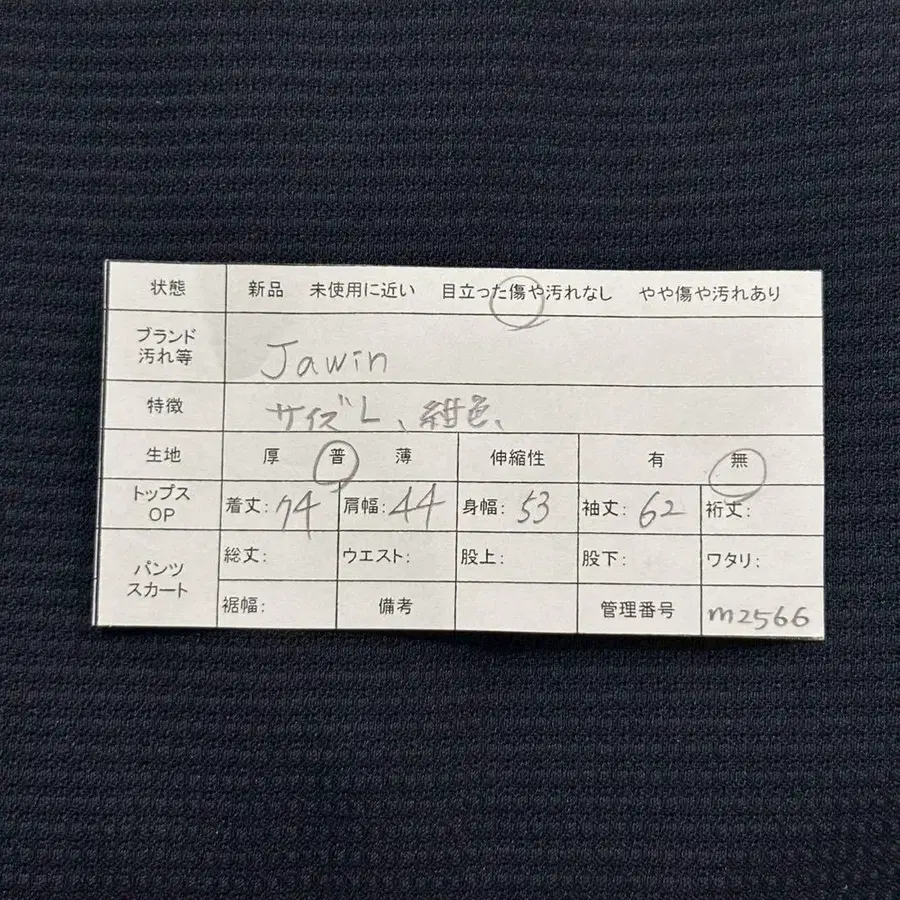 状態 新品 未使用に近い 目立った傷や汚れなし やや傷や汚れあり
ブランド
汚れ等
Jawin
特徴 サイズL、紺色、
生地 厚 普 薄 伸縮性 有 無
トップス
OP
着丈: 74 肩幅: 44 身幅: 53 袖丈: 62 裄丈:
パンツ
スカート
総丈: ウエスト: 股上: 股下: ワタリ:
裾幅: 備考 管理番号 m2566